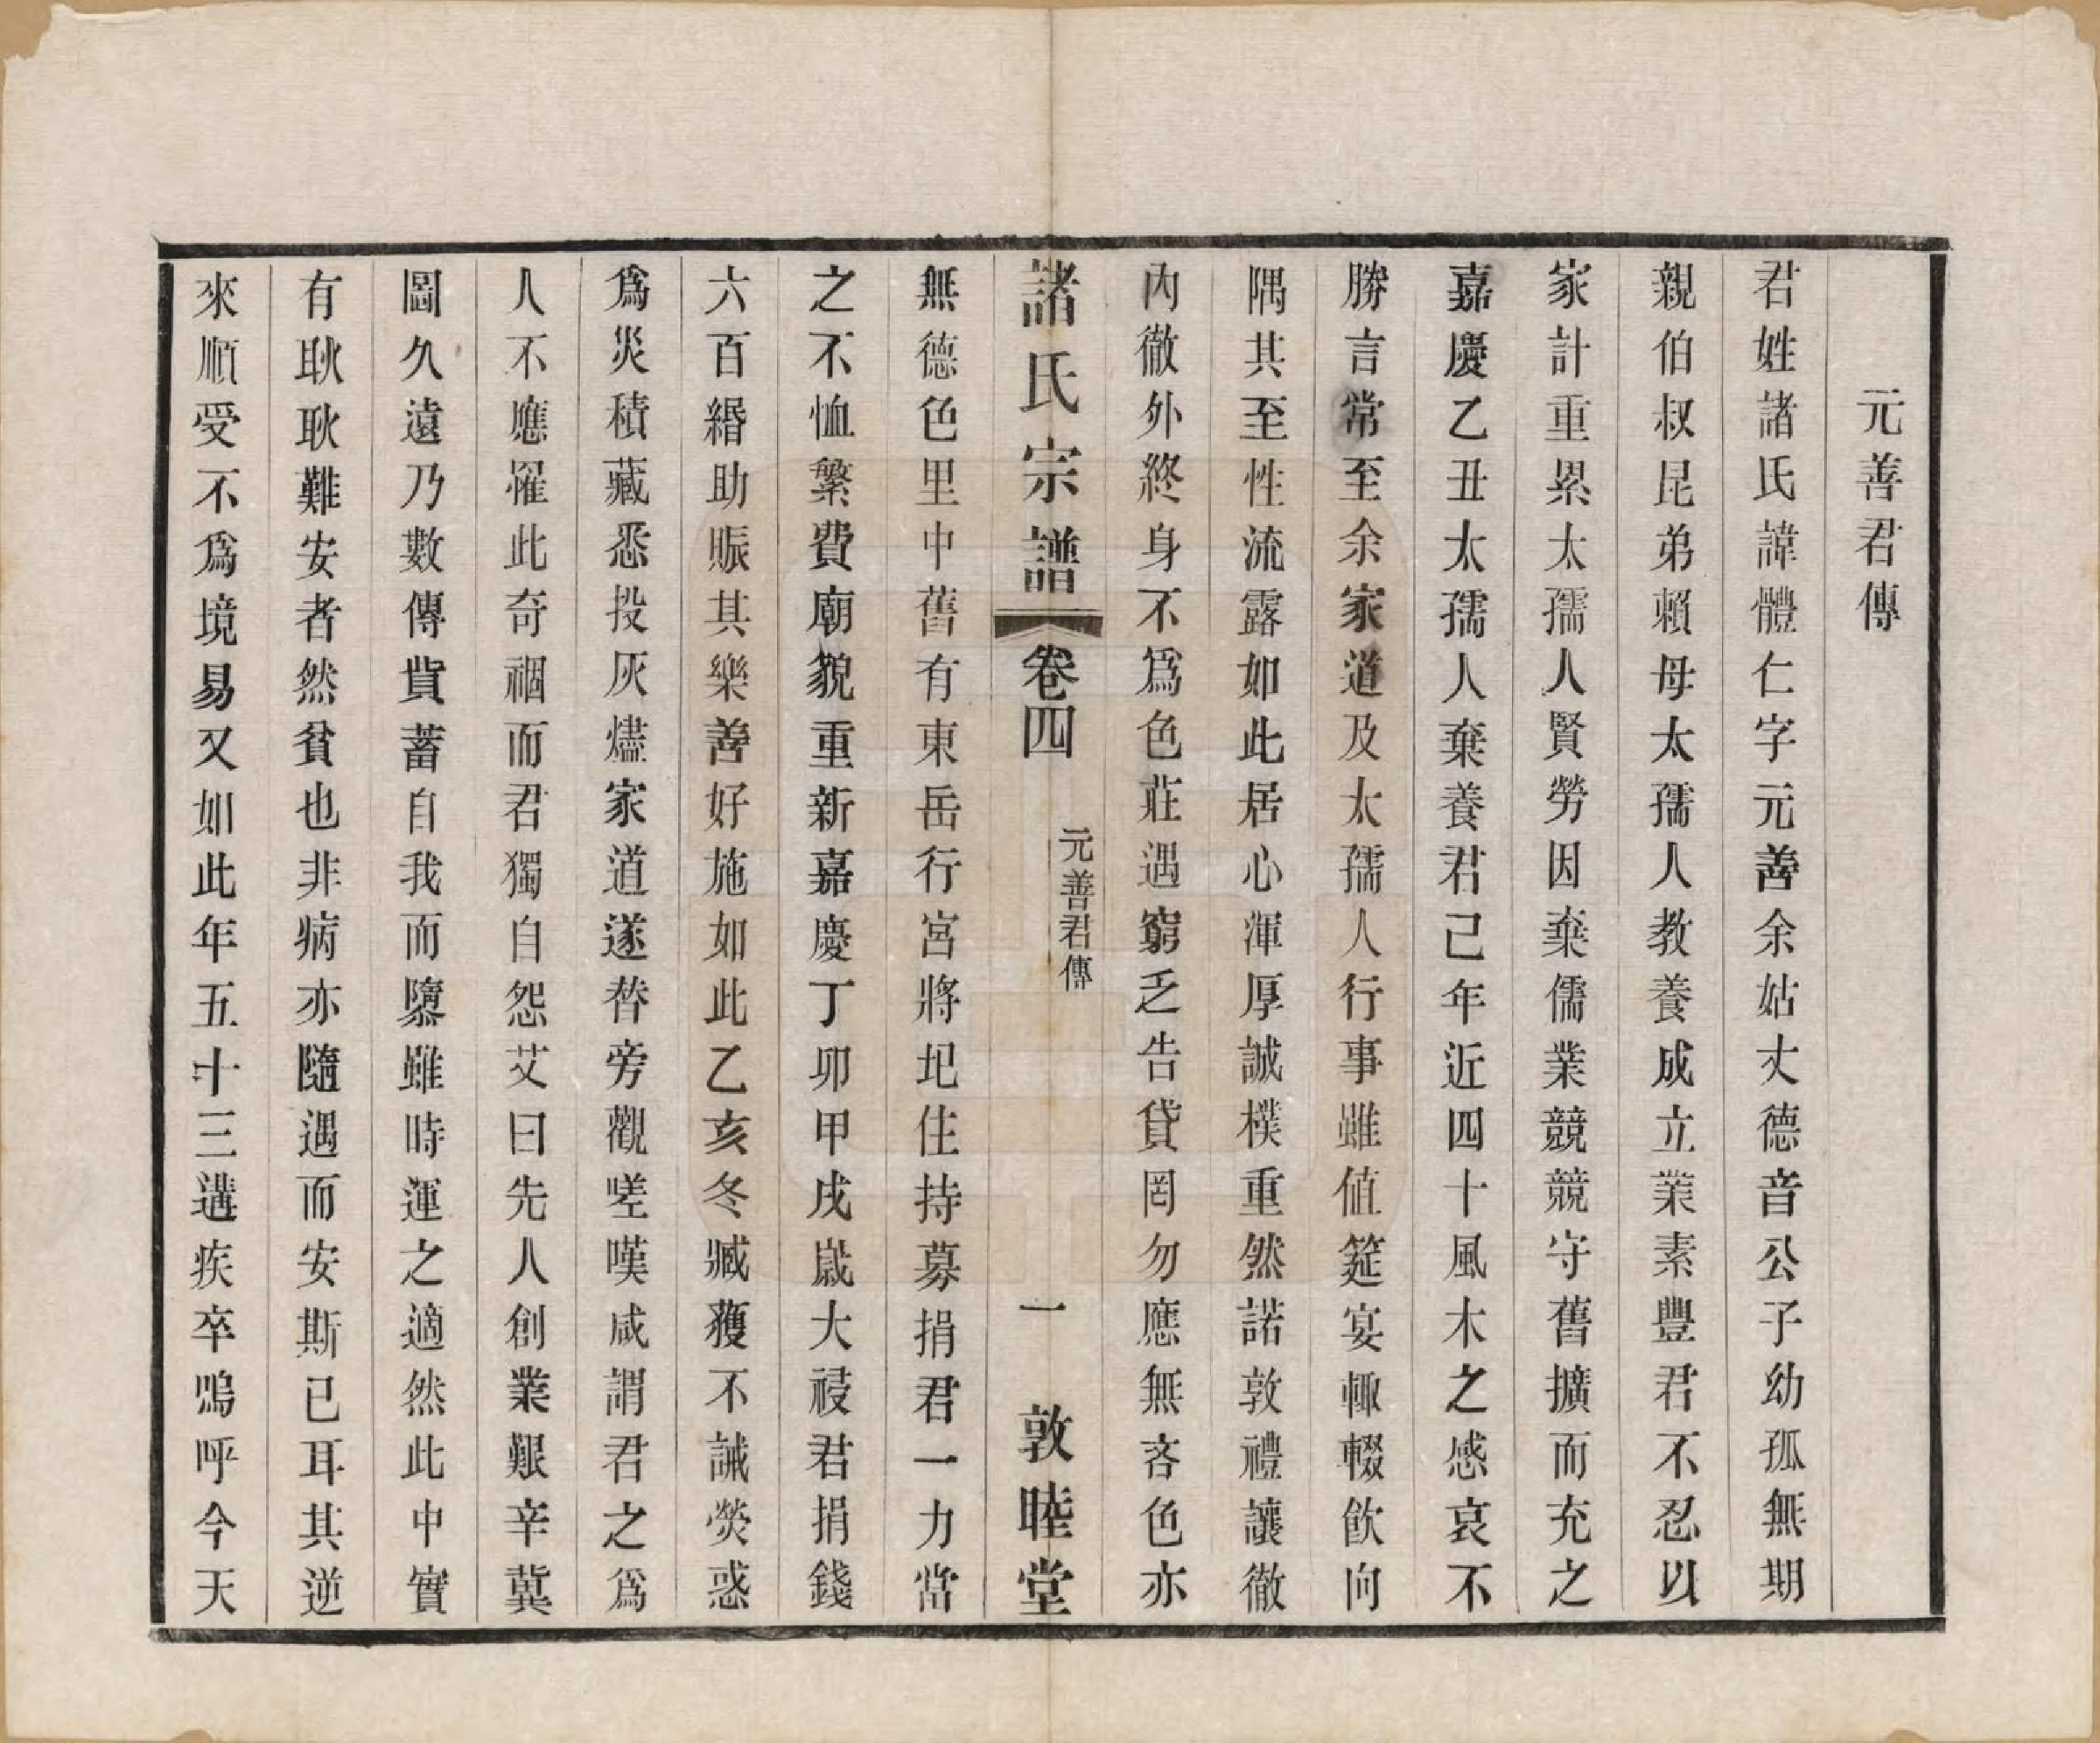 元善君傳
君姓諸氏諱體仁字元善余姑丈德音公子幼孤無期
親伯叔昆弟賴母太孺人教養成立業素豐君不忍以
家計重累太孺人賢勞因棄儒業競競守舊擴而充之
嘉慶乙丑太孺人棄養君己年近四十風木之感哀不
勝言常至余家道及太孺人行事雖値筵宴輙輟飲向
隅其至性流露如此居心渾厚誠樸重然諾敦禮讓徹
內徹外終身不爲色莊遇窮乏告貸罔勿應無吝色亦
無德色里中舊有東岳行宮將圮住持募捐君一力當
之不恤繁費廟貌重新嘉慶丁卯甲戌歲大祲君捐錢
六百緡助賑其樂善好施如此乙亥冬臧獲不誡熒惑
爲災積藏悉投灰燼家道遂替旁觀嗟嘆咸謂君之爲
人不應罹此奇禍而君獨自怨艾曰先人創業艱辛冀
圖久遠乃數傳貲蓄自我而隳雖時運之適然此中實
有耿耿難安者然貧也非病亦隨遇而安斯已耳其逆
來順受不爲境易又如此年五十三遘疾卒嗚呼今天
諸氏宗譜
卷四
元善君傳
一
敦睦堂